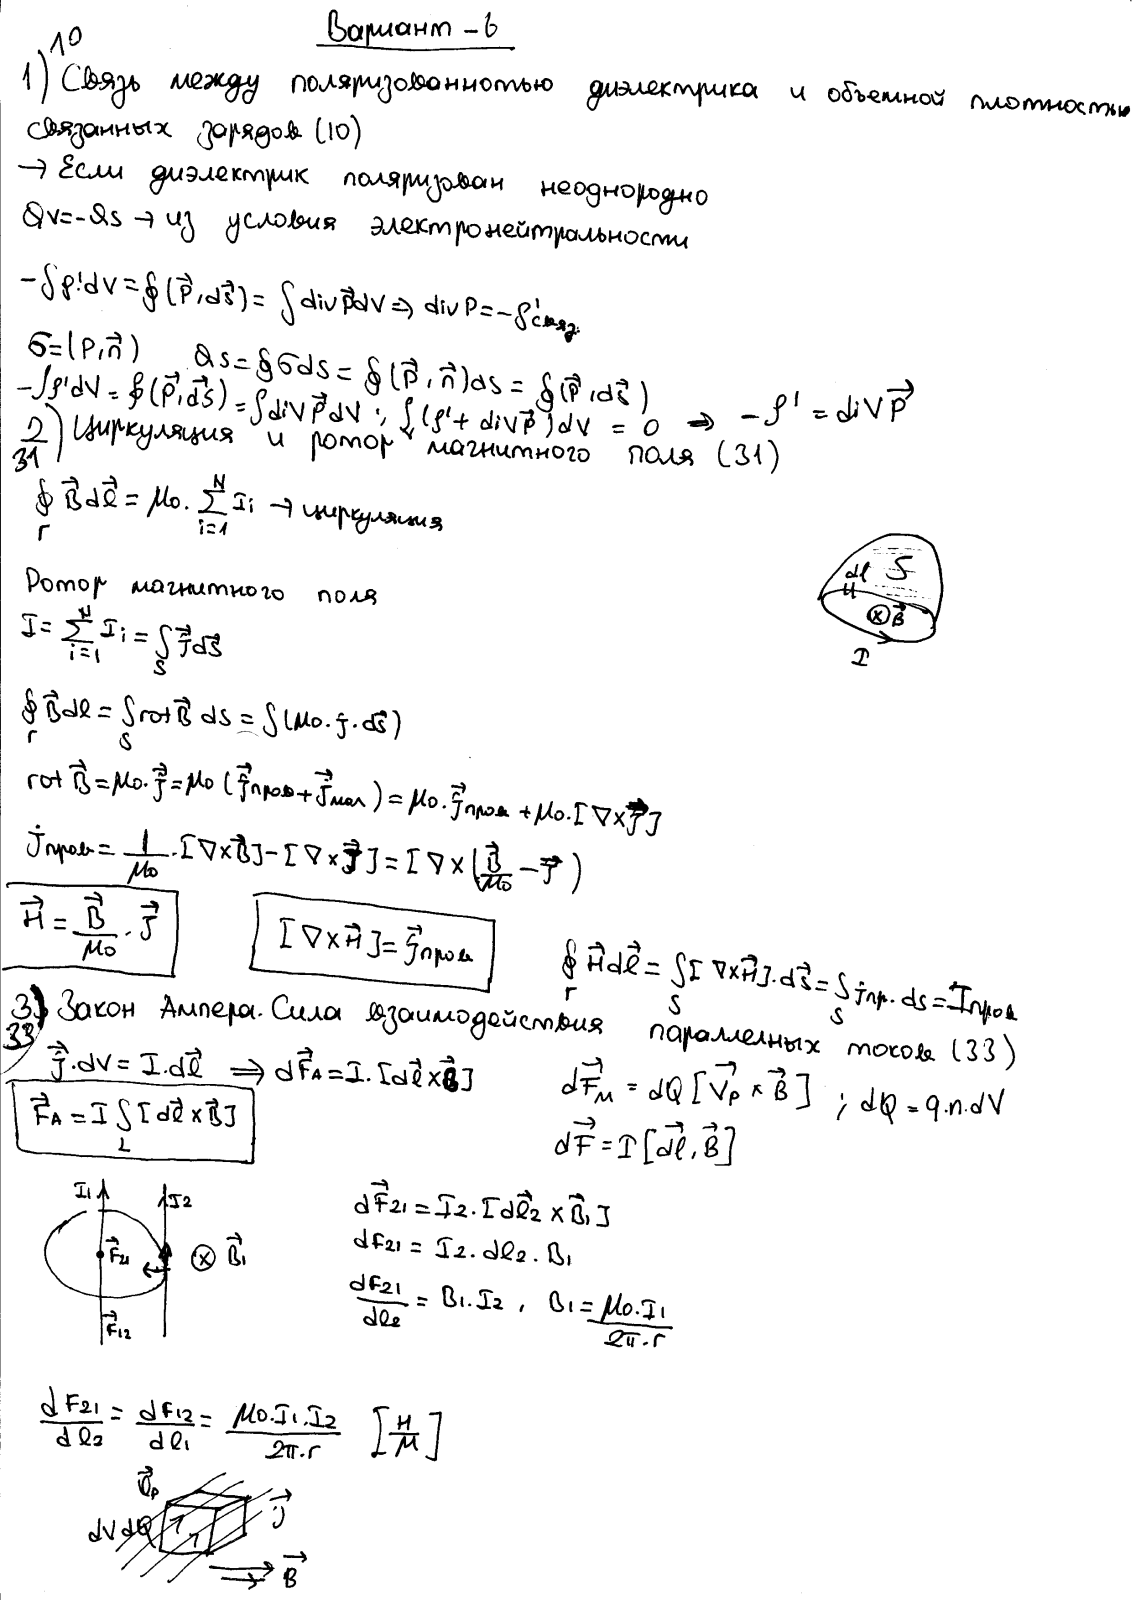 Вариант - 6
10
1) Связь между поляризованностью диэлектрика и объемной плотностью
связанных зарядов (10)
→ Если диэлектрик поляризован неоднородно
Qv=-Qs → из условия электронейтральности
-∫ρ'dV = ∮(P⃗, dS⃗) = ∫divP⃗dV ⇒ divP = -ρ'связ.
σ=(P, n⃗) Qs = ∮σds = ∮(P⃗, n⃗)ds = ∮(P⃗, ds⃗)
-∫ρ'dV = ∮(P⃗, dS⃗) = ∫divP⃗dV ; ∫(ρ' + divP⃗)dV = 0 ⇒ -ρ' = divP⃗
2) Циркуляция и ротор магнитного поля (31)
31
∮_Γ B⃗dl⃗ = μ0 · Σ_{i=1}^{N} Ii → циркуляция
Ротор магнитного поля
I = Σ_{i=1}^{N} Ii = ∫_S j⃗ds⃗
dl S
⊗B⃗
I
∮_Γ B⃗dl = ∫_S rotB⃗ ds = ∫(μ0 · j · ds⃗)
rot B⃗ = μ0 · j⃗ = μ0 (j⃗пров + j⃗мол) = μ0 · j⃗пров + μ0 · [∇×J⃗]
jпров = 1/μ0 · [∇×B⃗] - [∇×J⃗] = [∇×(B⃗/μ0 - J⃗)
H⃗ = B⃗/μ0 · J⃗
[∇×H⃗] = j⃗пров
∮_Γ H⃗dl⃗ = ∫_S [∇×H⃗] · ds⃗ = ∫_S jпр. · ds = Iпров
3) Закон Ампера. Сила взаимодействия параллельных токов (33)
33
j⃗ · dV = I · dl⃗ ⇒ dF⃗A = I · [dl⃗×B⃗]
dF⃗м = dQ [V⃗р × B⃗] ; dQ = q.n.dV
F⃗A = I ∫_L [dl⃗×B⃗]
dF⃗ = I [dl⃗, B⃗]
I1 I2
F⃗21 ⊗ B⃗1
F⃗12
dF⃗21 = I2 · [dl⃗2 × B⃗1]
dF21 = I2 · dl2 · B1
dF21/dl2 = B1 · I2 , B1 = μ0 · I1/2π · r
dF21/dl2 = dF12/dl1 = μ0 · I1 · I2/2π · r [Н/м]
dV dQ
B⃗